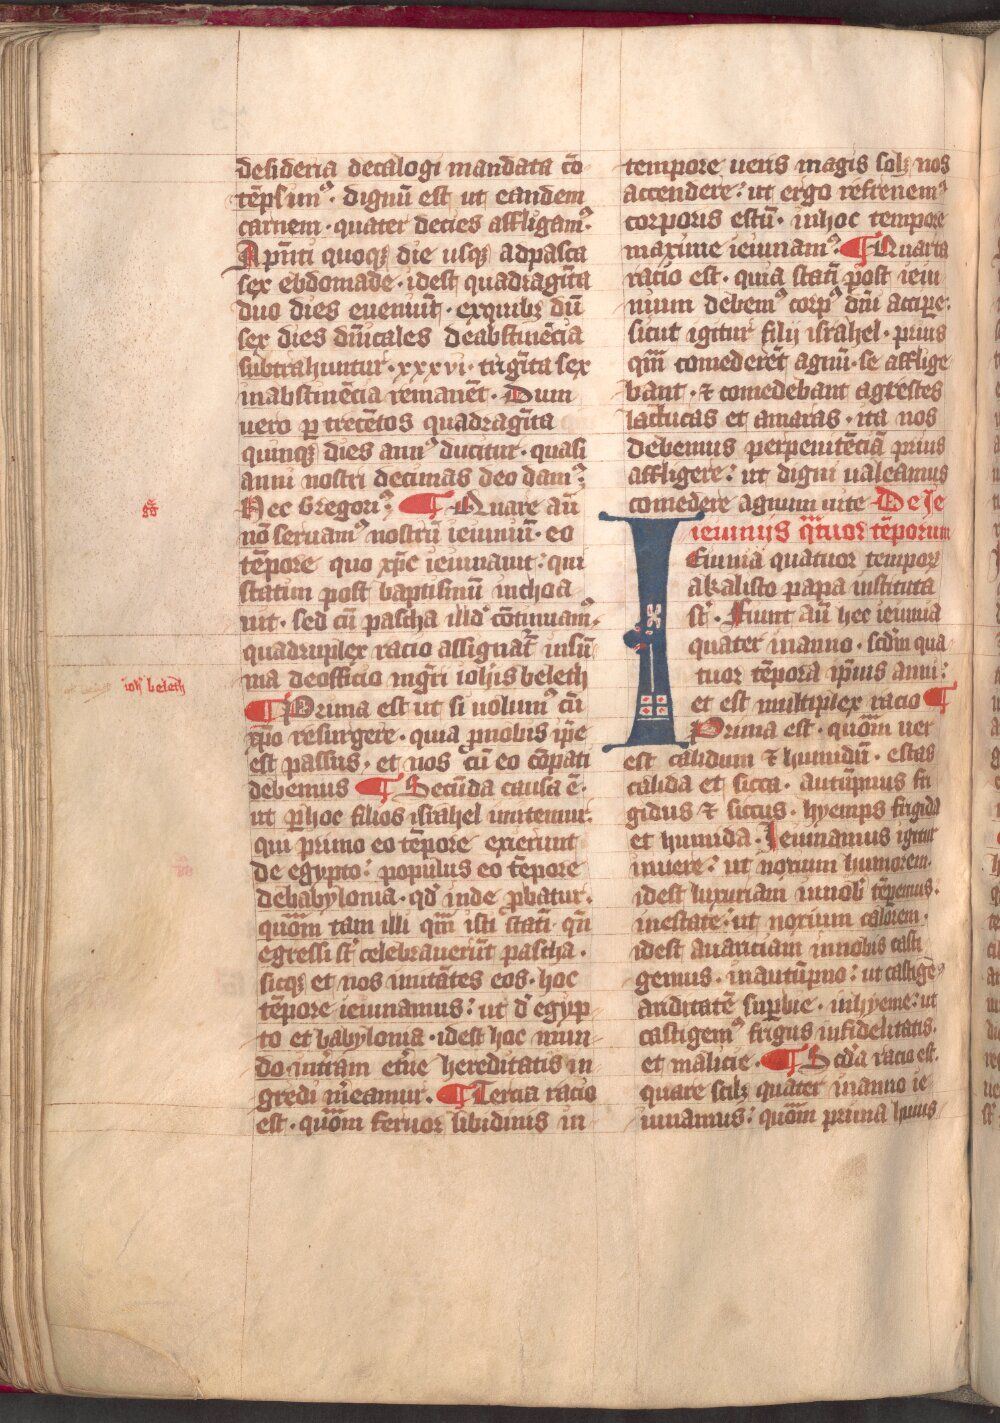 desideria decalogi mandata cō
tēpsimꝰ · dignū est ut eandem
carnem · quater decies affligamꝰ ·
A pn̄ti quoqꝫ die usqꝫ adpasca
sex ebdomade · idest quadragīta
duo dies eveniūt · exquibꝫ dū
sex dies dn̄icales deabstinēcia
subtrahuntur · xxxvi · trigīta sex
inabstinēcia remanēt · Dum
uero ꝑ trecētos quadragīta
quinqꝫ dies annꝰ ducitur · quasi
anni nostri decimas deo damꝰ ·
Hec Gregoriꝰ · ¶ Quare aū
nō seruamꝰ nostrū ieiuniū · eo
tēpore quo xp̄c ieiunauit : qui
statim post baptismū inchoa
uit · sed cū pascha illđ cōtinuamꝰ ·
quadruplex racio assignat᷑ insū
ma deofficio mgr̄i ioh̄is beleth
¶ Prima est ut si uolumꝰ cū
xp̄o resurgere · quia ꝓnobis ip̄e
est passus · et nos cū eo cōpati
debemus ¶ Secūda causa ē ·
ut ꝑhoc filios israhel imitemur ·
qui primo eo tēpore exierunt
de egypto : populus eo tēpore
debabylonia · qđ inde ꝓbatur ·
quōm tam illi qm̄ isti statī qn̄
egressi st̄ celebrauerūt pascha ·
sicqꝫ et nos imitātes eos · hoc
tēpore ieiunamus : ut đ egyp
to et babylonia · idest hoc mun
do intram et̄ne hereditatis in
gredi m̄eamur · ¶ Tercia racio
est · quōm feruor libidinis in
tempore ueris magis solꝫ nos
accendere : ut ergo refrenemꝰ
corporis estū · inhoc tempore
maxime ieiunamꝰ · ¶ Quarta
racio est · quia statī post ieiu
nium debemꝰ corpꝰ dn̄i accipe :
sicut igitur filij israhel · prius
qm̄ comederēt agnū · se afflige
bant · ⁊ comedebant agrestes
lactucas et amaras · ita nos
debemus perpenitēciā prius
affligere : ut digni ualeamus
comedere agnum uite De Ie
ieiuniis qt̄uor tēporum
Ieiunia quatuor tempoꝝ
akalisto papa instituta
st̄ · Fiunt aū hec ieiunia
quater inanno · scđm qua
tuor tēpora ip̄ius anni :
et est multiplex racio ¶
Prima est · quōm uer
est calidum ⁊ humidū · estas
calida et sicca · autūpnus fri
gidus ⁊ siccus · hyemps frigida
et humida · Ieiunamus igitur
inuere : ut noxium humorem ·
idest luxuriam innob̄ tēpemus ·
inestate · ut noxium calorem ·
idest auariciam innobis casti
gemus · inautūpno : ut castigēꝰ
ariditatē suꝑbie · inhyeme : ut
castigemꝰ frigus infidelitatis ·
et malicie · ¶ Scđa racio est ·
quare scilꝫ quater inanno ie
iunamus : quōm prima huius
ioh̄ beleth